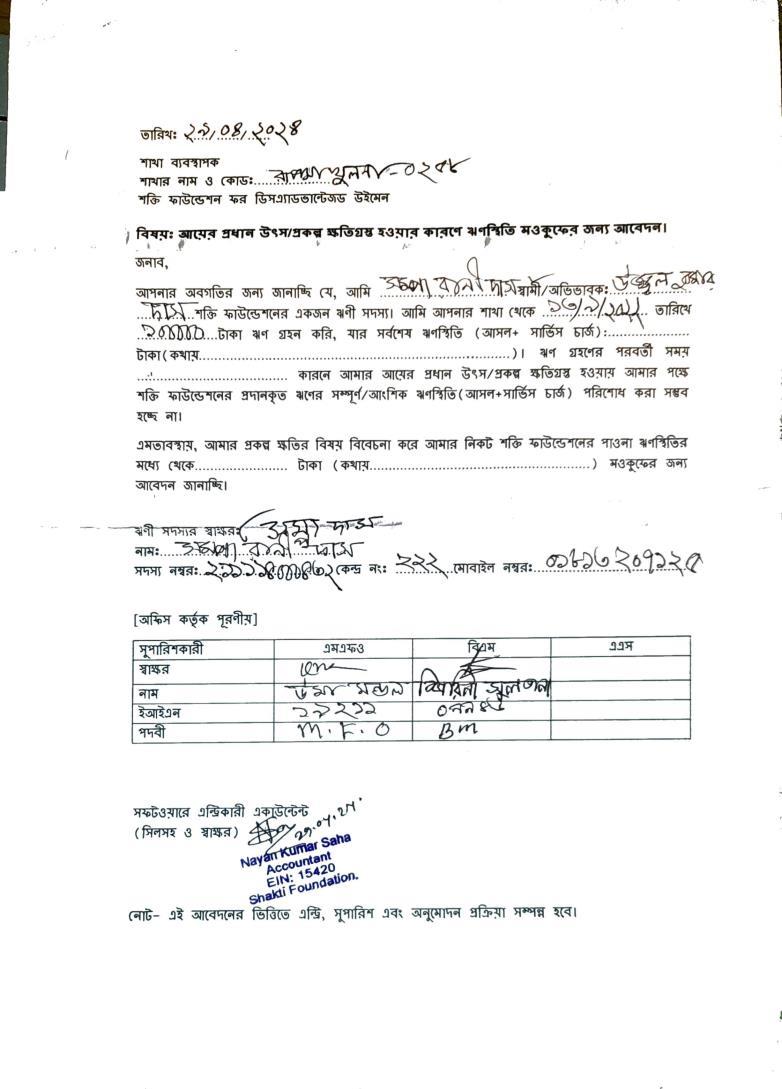 তারিখঃ ২৯/০৪/২০২৪
শাখা ব্যবস্থাপক
শাখার নাম ও কোড:...... রূপসা খুলনা-০২৫৮
শক্তি ফাউন্ডেশন ফর ডিসএ্যাডভান্টেজড উইমেন
বিষয়: আয়ের প্রধান উৎস/প্রকল্প ক্ষতিগ্রস্ত হওয়ার কারণে ঋণস্থিতি মওকুফের জন্য আবেদন।
জনাব,
আপনার অবগতির জন্য জানাচ্ছি যে, আমি রানী দাস স্বামী/অভিভাবক: উজ্জ্বল কুমার
দাস শক্তি ফাউন্ডেশনের একজন ঋণী সদস্য। আমি আপনার শাখা থেকে তারিখে
২০০০০ টাকা ঋণ গ্রহন করি, যার সর্বশেষ ঋণস্থিতি (আসন+ সার্ভিস চার্জ):..................
টাকা(কথায়......................................................)। ঋণ গ্রহণের পরবর্তী সময়
.......................... কারনে আমার আয়ের প্রধান উৎস/প্রকল্প ক্ষতিগ্রস্ত হওয়ায় আমার পক্ষে
শক্তি ফাউন্ডেশনের প্রদানকৃত ঋণের সম্পূর্ণ/আংশিক ঋণস্থিতি(আসন+সার্ভিস চার্জ) পরিশোধ করা সম্ভব
হচ্ছে না।
এমতাবস্থায়, আমার প্রকল্প ক্ষতির বিষয় বিবেচনা করে আমার নিকট শক্তি ফাউন্ডেশনের পাওনা ঋণস্থিতির
মধ্যে থেকে................ টাকা (কথায়........................................) মওকুফের জন্য
আবেদন জানাচ্ছি।
ঋণী সদস্যর স্বাক্ষর: দাস
নাম: রানী দাস
সদস্য নম্বর: কেন্দ্র নং: ২২২ মোবাইল নম্বর: ০১৮১৬২০৭১২৫
[অফিস কর্তৃক পূরণীয়]
সুপারিশকারী এমএফও বিএম এএস
স্বাক্ষর
নাম উমা মন্ডল সুলতানা
ইআইএন ১৯২১১
পদবী M.F.O BM
সফটওয়ারে এন্ট্রিকারী একাউন্টেন্ট
(সিলসহ ও স্বাক্ষর) 29.04.24
Nayan Kumar Saha
Accountant
EIN: 15420
Shakti Foundation.
নোট- এই আবেদনের ভিত্তিতে এন্ট্রি, সুপারিশ এবং অনুমোদন প্রক্রিয়া সম্পন্ন হবে।